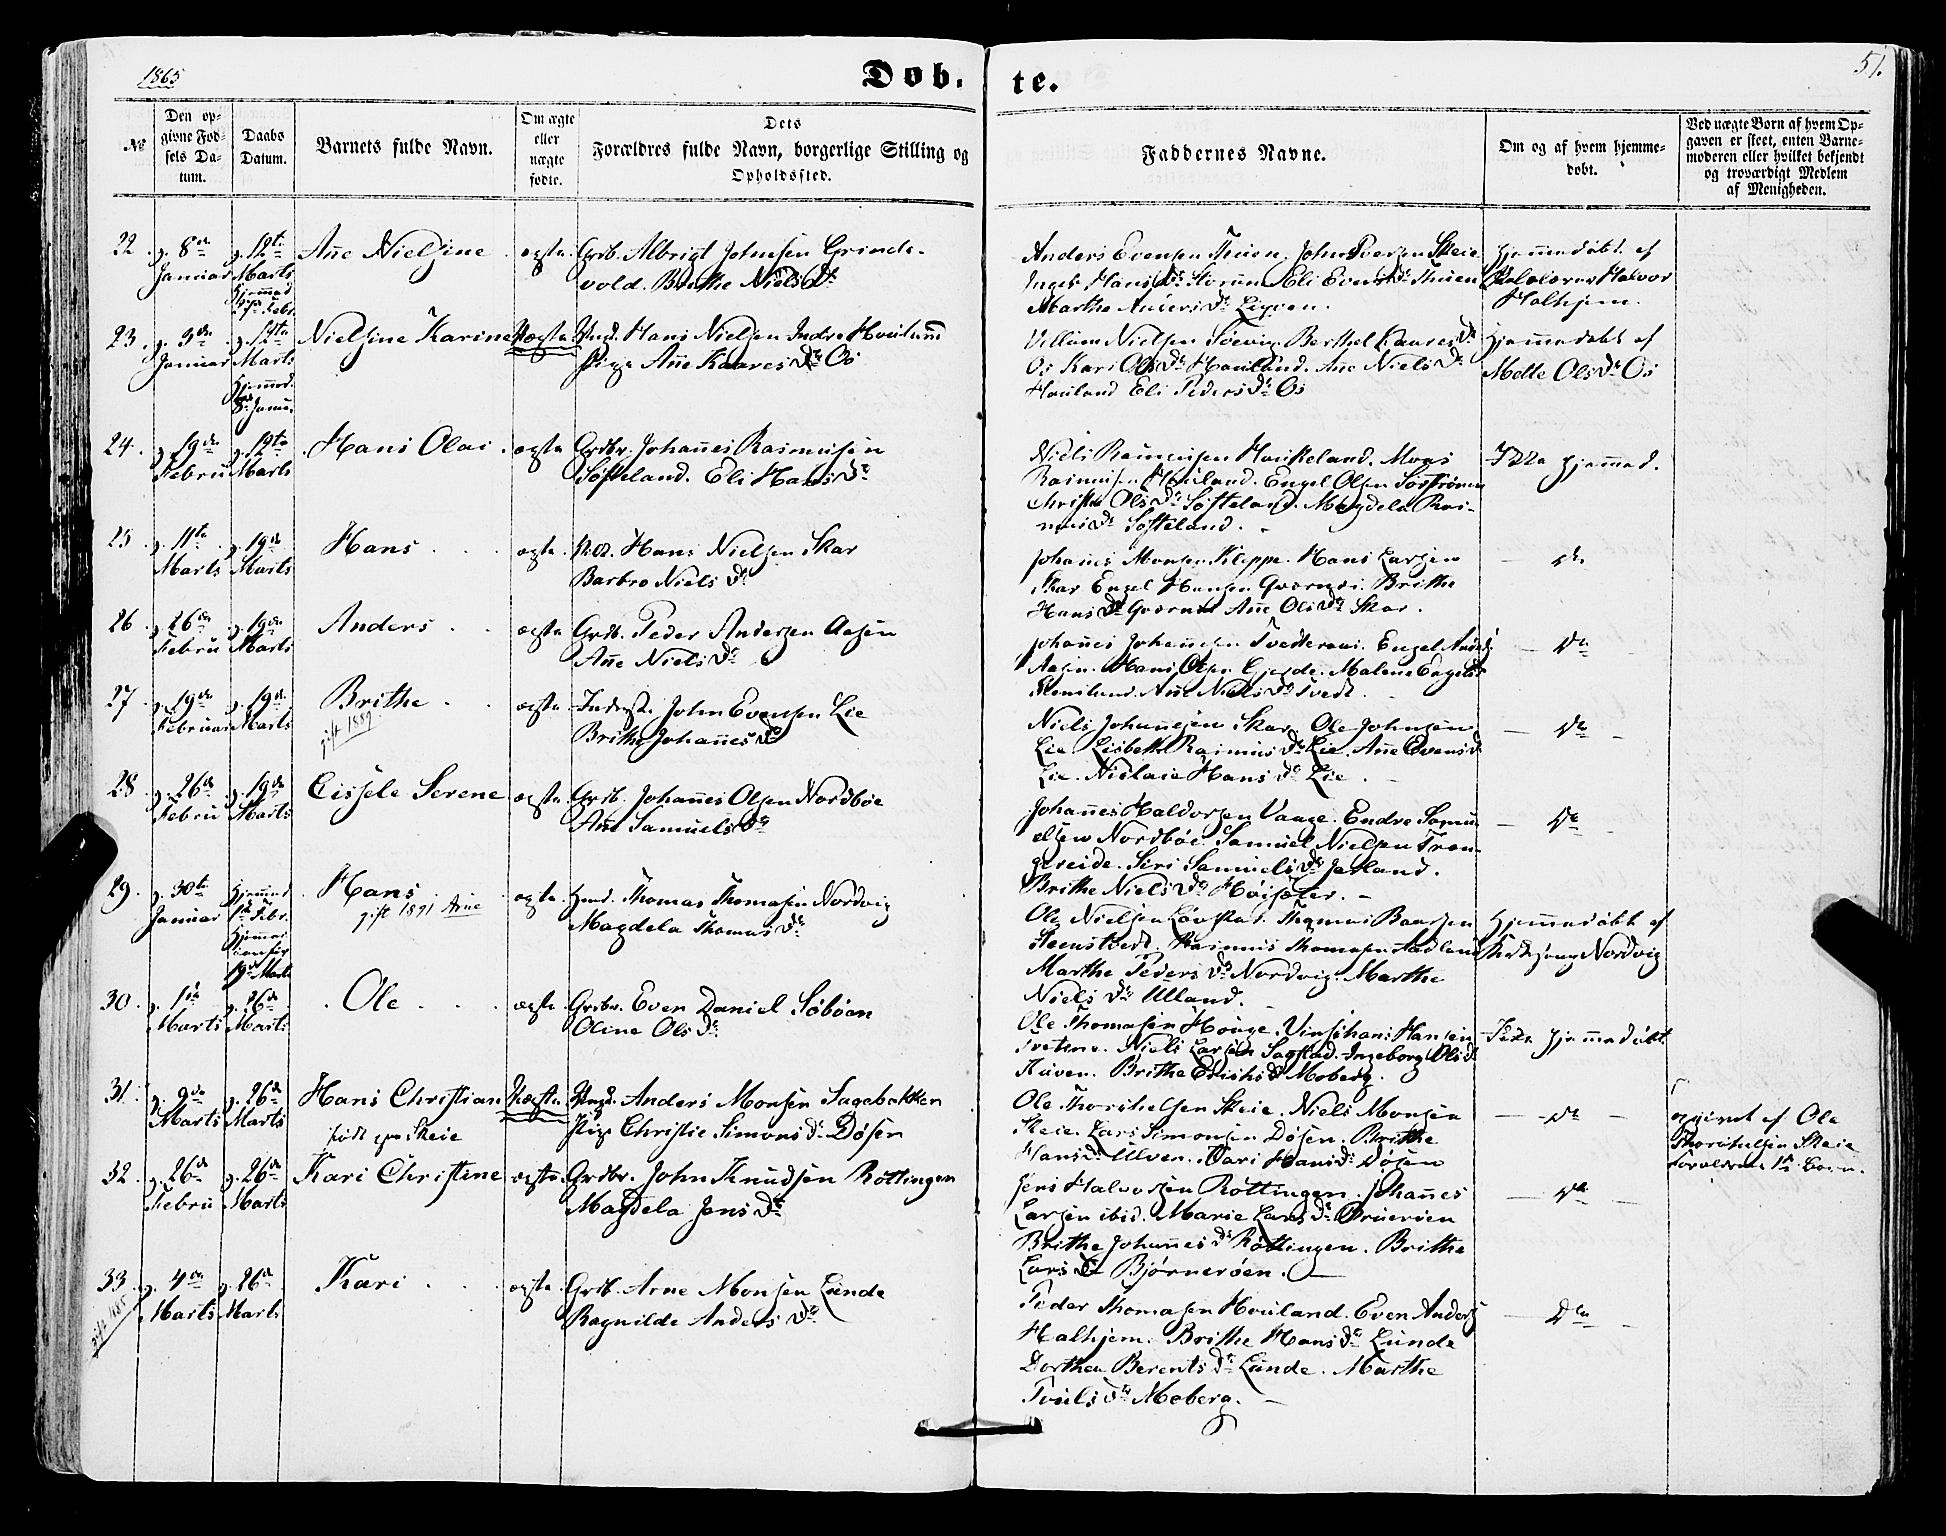 1865
Døb. te.
51.
No
Den op-
givne Fød-
sels Da-
tum.
Daabs
Datum.
Barnets fulde Navn.
Om ægte
eller
uægte
fødte.
Dets
Forældres fulde Navn, borgerlige Stilling og
Opholdssted.
Faddernes Navne.
Om og af hvem hjemme-
døbt.
Ved uægte Børn af hvem Op-
gaven er skeet, enten Barne-
moderen eller hvilket bekjendt
og troværdigt Medlem
af Menigheden.
22. 8de Januar 12te Marts Hjemmed. Febr.
Añe Nielsine
ægte
Grdb. Albrigt Johnsen Grinde-
vold. Brithe Niels Dr
Anders Evensen Tuen. John Iversen Skeie
Hans Dr Eli Evens Dr Tuen
Marthe Anders Dr
Hjemmedøbt af
Halvor
Halhjem.
23. 3de Januar 12te Marts Hjemmed. 8de Janu.
Nielsine Karine
Uægte
Ungk. Hans Nielsen Indre Hovland
Pige Añe Kaares Dr Os
Villum Nielsen Søevig. Berthel Kaares Dr
Os Kari Ols Dr Hauland. Ane Niels Dr
Hauland Eli Peders Dr Os
Hjemmedøbt af
Mette Ols Dr Os
24. 19de Febru 12te Marts
Hans Olai
ægte
Grdbr. Johañes Rasmusen
Søfteland. Eli Hans Dr
Niels Rasmusen Haukeland. Mons
Rasmusen Hauland. Engel Olsen
Christi Ols Dr Søfteland. Magdela Ras-
mus Dr Søfteland.
Ikke hjemmed.
25. 11te Marts 19de Marts
Hans
ægte
Hans Nielsen Skar
Barbro Niels Dr
Johañes Monsen Kleppe. Hans Larsen
Skar Engel Hansen Brithe
Hans Dr Añe Ols Dr Skar.
do
26. 26de Febru 19de Marts
Anders
ægte
Grdb. Peder Andersen Aasen
Añe Niels Dr
Johañes Johañesen Engel
Aasen. Hans Olsen Gjerde. Malene Engels
Añe Niels Dr Tvedt.
Do
27. 19de Februar 19de Marts
Brithe
gift 1889
ægte
Inderst. John Evensen Lie
Brithe Johañes Dr
Niels Johañesen Skar Ole Johnsen
Lie Lisbeth Rasmus Dr Lie. Añe Evens Dr
Lie. Niclaie Hans Dr Lie.
Do
28. 26de Febru 19de Marts
Cissele Serene
ægte
Grdb. Johañes Olsen Nordbøe
Añe Samuels Dr
Johañes Haldorsen Vaage. Endre Samu
elsen Nordbøe Samuel Nielsen Tren-
gereide. Siri Samuels Dr Jaland.
Brithe Niels Dr Høisæter.
Do
29. 30te Januar Hjemmed 1ste Febr. 19de Marts
Hans
gift 1891 Arne
ægte
Thomas Thomasen Nordvig
Magdela Thomas Dr
Ole Nielsen Thomas Baarsen
Rasmus Thomasen
Marthe Peders Dr Nordvig. Marthe
Niels Dr Ulland.
Hjemmedøbt af
Nordvig
30. 1ste Marts 26de Marts
Ole
ægte
Grdbr. Even Daniel Søbøen
Oline Ols Dr
Ole Thomasen Houge. Vinsjhans Hansen
Niels Larsen Sagstad. Ingeborg Ols Dr
Kuven. Brithe Erichs Dr Moberg.
Ikke hjemmedøbt
31. 9de Marts 26de Marts
Hans Christian
født paa Skeie
Uægte
Ungk. Anders Monsen Sagebakken
Pige Christie Simons Dr Døsen
Ole Thorchelsen Skeie. Niels Monsen
Skeie. Lars Simonsen Døsen. Brithe
Hans Dr Ulven. Kari Hans Dr Døsen
do
opgivet af Ole
Thorchelsen Skeie
Forældrenes 1ste Barn.
32. 26de Febru 26de Marts
Kari Christine
ægte
Grdbr. John Knudsen Røttingen
Magdela Jens Dr
Jens Halvorsen Røttingen. Johañes
Larsen ibid. Marie Lars Dr Bruerøen
Brithe Johañes Dr Røttingen. Brithe
Lars Dr Bjørnerøen.
Do
33. 4de Marts 26de Marts
gift 1885
Kari
ægte
Grdb. Arne Monsen Lunde
Ragnilde Anders Dr
Peder Thomasen Houland. Even Anders
Halhjem. Brithe Hans Dr Lunde
Dorthea Berents Dr Lunde. Marthe
Pouls Dr Moberg.
Do